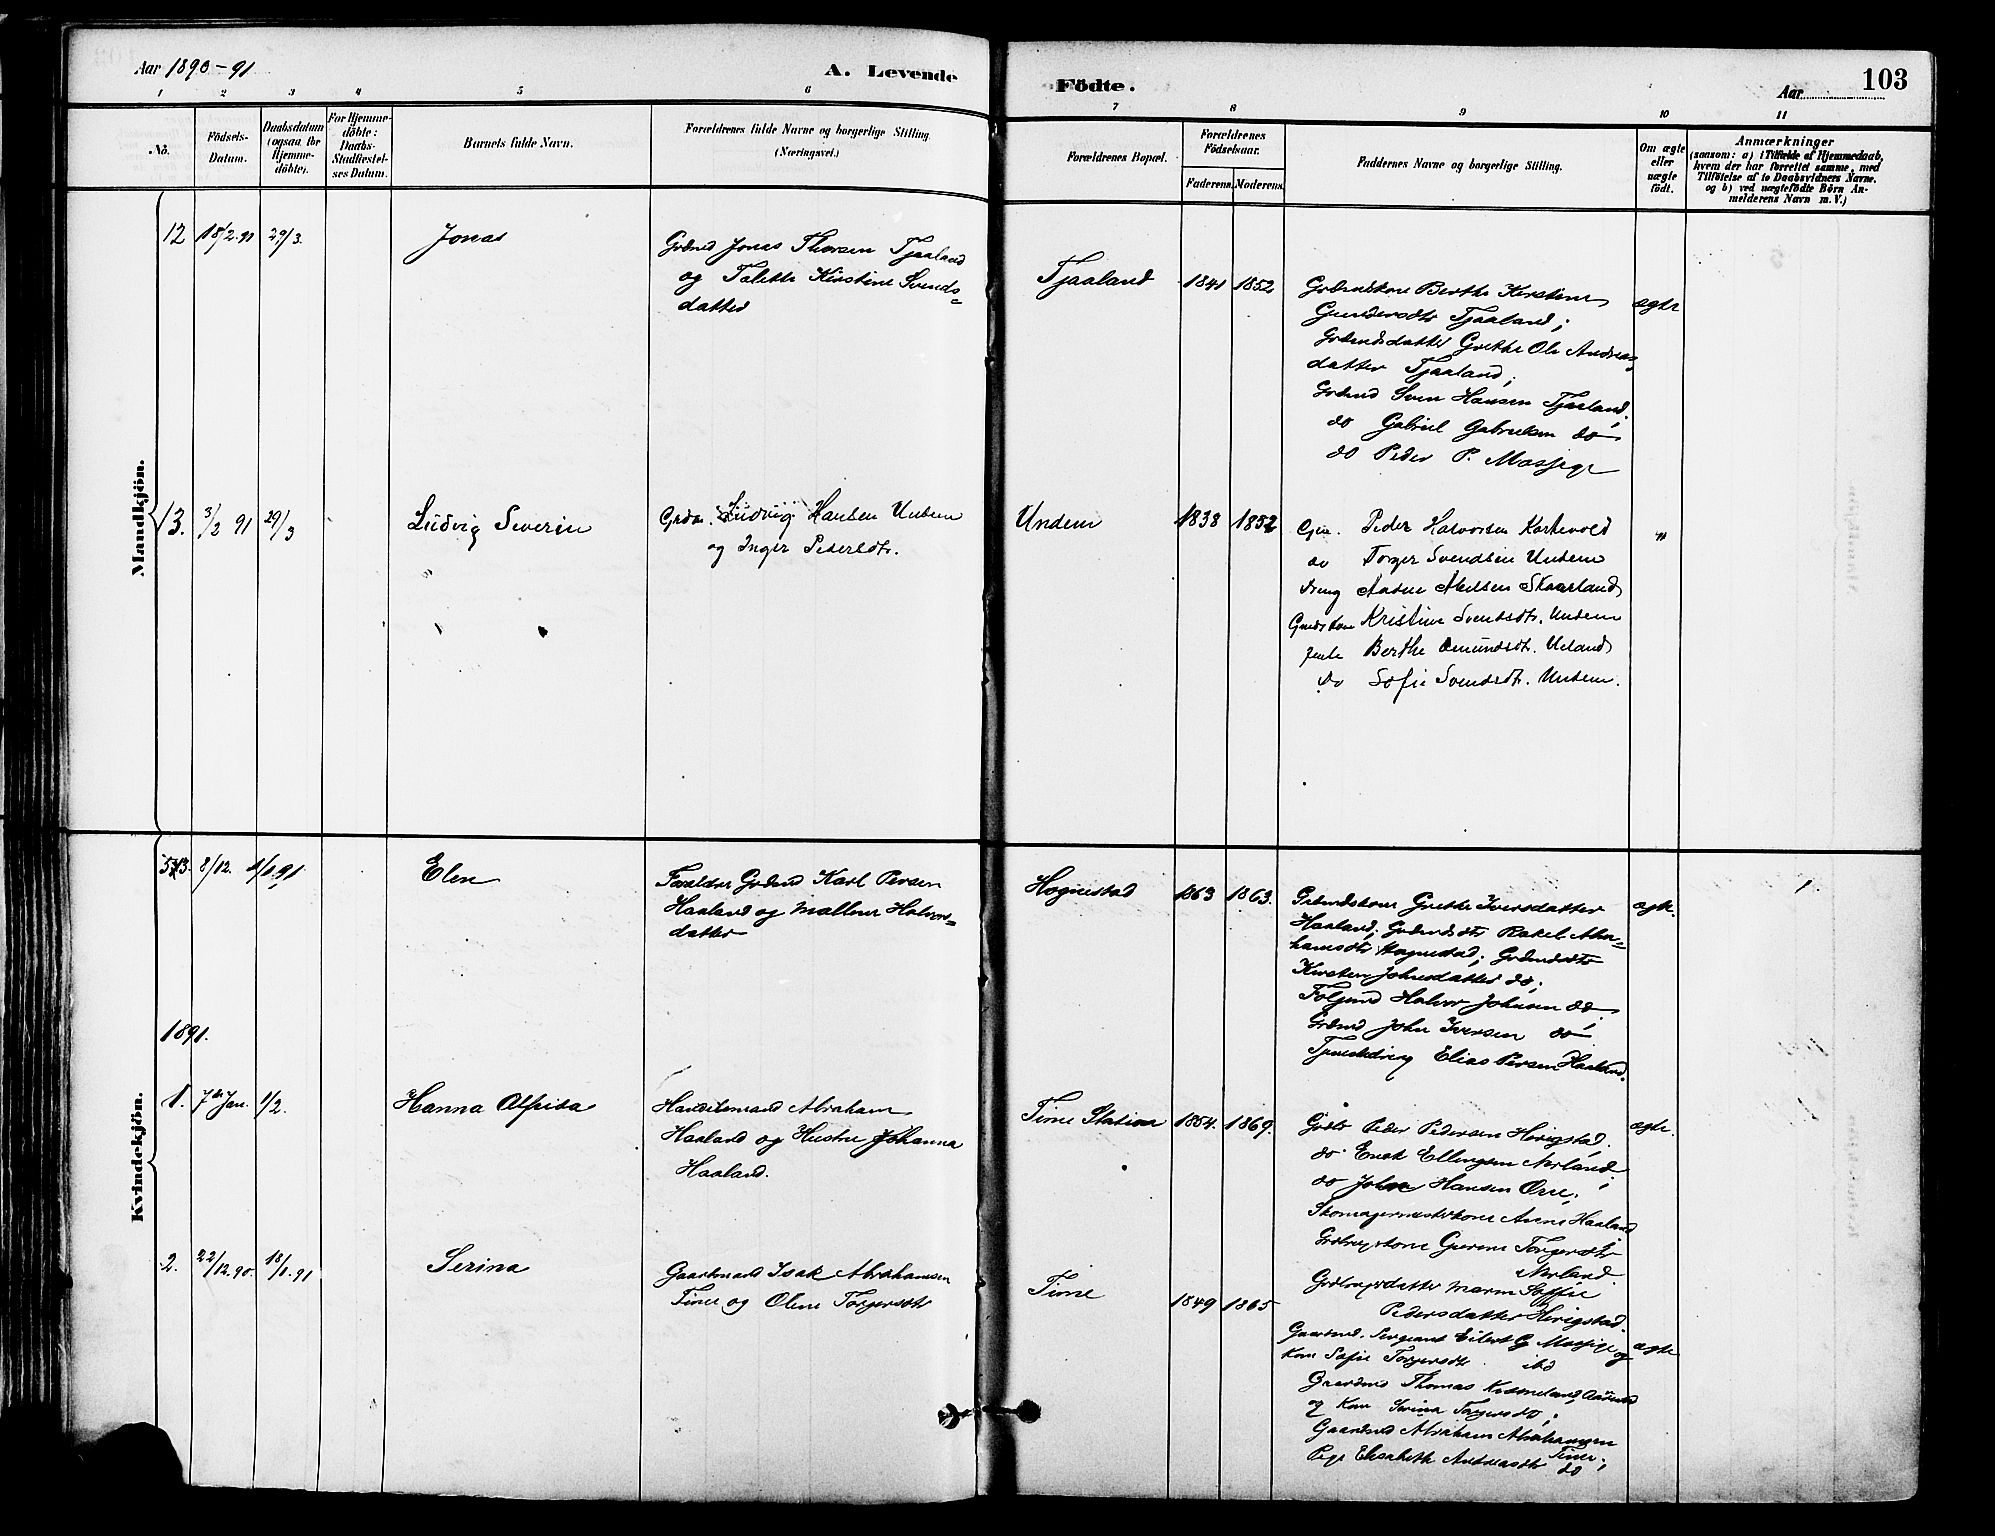 Aar 1890-91
A. Levende
Födte.
Aar
103
1 2 3 4 5 6 7 8 9 10 11
No.
Födsels-
Datum.
Daabsdatum
(ogsaa for
Hjemme-
döbte).
For Hjemme-
döbte:
Daabs-
Stadfæstel-
ses Datum.
Barnets fulde Navn.
Forældrenes fulde Navne og borgerlige Stilling.
(Næringsvei.)
Forældrenes Bopæl.
Forældrenes
Födselsaar.
Faderens. Moderens.
Faddernes Navne og borgerlige Stilling.
Om ægte
eller
uægte
födt.
Anmærkninger
(saasom: a) i Tilfælde af Hjemmedaab,
hvem der har forrettet samme, med
Tilföielse af to Daabsvidners Navne.
og b) ved uægtefödte Börn An-
melderens Navn m. V.)
Mandkjön.
12 18/2.91 29/3.
Jonas
Grdmd Jonas Thorsen Tjaaland
og Talette Kirstine Svends-
datter
Tjaaland
1841 1852
Grdmdskone Berthe Kirstine
Gundersdtr Tjaaland;
Grdmdsdatter Grethe Ol. Andreas
datter Tjaaland;
Grdmd Sven Hansen Tjaaland,
do Gabriel Gabrielsen do
do Peder P. Mossige
ægte
13. 3/2 91 29/3
Ludvig Severin
Grdm. Ludvig Hansen Undem
og Inger Pedersdtr.
Undem
1838 1852
Peder Halvorsen
do Torger Svendsen Undem
Dreng Aadne Nielsen Skaarland
Kristine Svendsdtr. Undem
Berthe Omundsdtr. Ueland
do Sofie Svendsdtr. Undem.
"
Kvindekjön.
8/12. 1/1 91
Elen
Forældre Grdmd Karl Persen
Haaland og Mallene Halvors-
datter
Hognestad
1863 1863.
Grdmdskone Grethe Iversdatter
Haaland; Grdmdsdtr Rakel Abra-
hamsdtr Hognestad; Grdmdsdtr
Kirsten Johnsdatter do;
Følgmd Halvor Johnsen do
Grdmd John Iversen do
Tjenestedreng Elias Persen Haaland.
ægte.
1891.
1. 7de Jan. 1/2.
Hanna Alfrida
Handelsmand Abraham
Haaland og Hustru Johanna
Haaland.
Time Station
1854. 1869.
Grdbr Peder Pedersen Herigstad,
do Enok Ellingsen Norland,
do John Hansen Orre,
Skomagermesterkone Anne Haaland
Grdbrugskone Gurine Torgersdtr
Norland.
Grdbrugsdatter Maren Soffie
Pedersdatter Herigstad.
ægte.
2. 22/12.90. 18/1.91
Serina
Gaardmand Isak Abrahamsen
Time og Olene Torgersdtr
Time
1849 1865
Gaardmd. Sergeant Eilert G Mossige og
Kone Sofie Torgersdtr ibd
Gaardmd Thomas
og Kone Serina Torgersd;
Gaardmd Abraham Abrahamsen
Time;
Pige Elisabeth Andreasdtr do
ægte